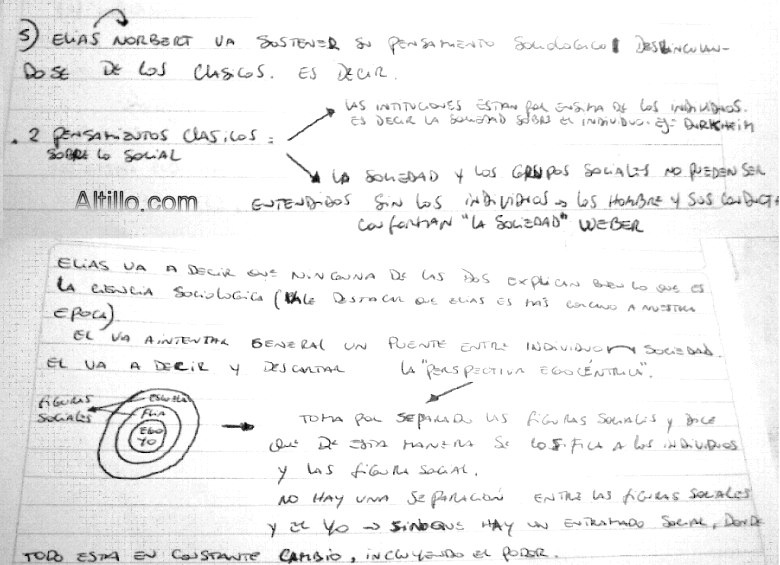 5) ELIAS NORBERT VA SOSTENER SU PENSAMIENTO SOCIOLOGICO DESVINCULAN-
DOSE DE LOS CLASICOS. ES DECIR.
LAS INTITUCIONES ESTAN POR ENSIMA DE LOS INDIVIDUOS.
ES DECIR LA SOCIEDAD SOBRE EL INDIVIDUO. EJ: DURKHEIM
. 2 PENSAMIENTOS CLASICOS :
SOBRE LO SOCIAL
LA SOCIEDAD Y LOS GRUPOS SOCIALES NO PUEDEN SER
ENTENDIDOS SIN LOS INDIVIDUOS → LOS HOMBRE Y SUS CONDUCTA
CONFORMAN "LA SOCIEDAD" WEBER
Altillo.com
ELIAS VA A DECIR QUE NINGUNA DE LAS DOS EXPLICAN BIEN LO QUE ES
LA CIENCIA SOCIOLOGICA (VALE DESTACAR QUE ELIAS ES MAS CERCANO A NUESTRA
EPOCA)
EL VA A INTENTAR GENERAL UN PUENTE ENTRE INDIVIDUO SOCIEDAD.
EL VA A DECIR Y DESCARTAR LA "PERSPECTIVA EGOCÉNTRICA".
FIGURAS
SOCIALES
ESCUELA
FLIA
EGO
YO
TOMA POR SEPARADO LAS FIGURAS SOCIALES Y DICE
QUE DE ESTA MANERA SE COSIFICA A LOS INDIVIDUOS
Y LAS FIGURA SOCIAL.
NO HAY UNA SEPARACIÓN ENTRE LAS FIGURAS SOCIALES
Y EL YO → SINO QUE HAY UN ENTRAMADO SOCIAL, DONDE
TODO ESTA EN CONSTANTE CAMBIO, INCLUYENDO EL PODER.